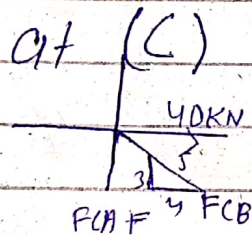 at (C)
40KN
5
3
4
FCA F FCB